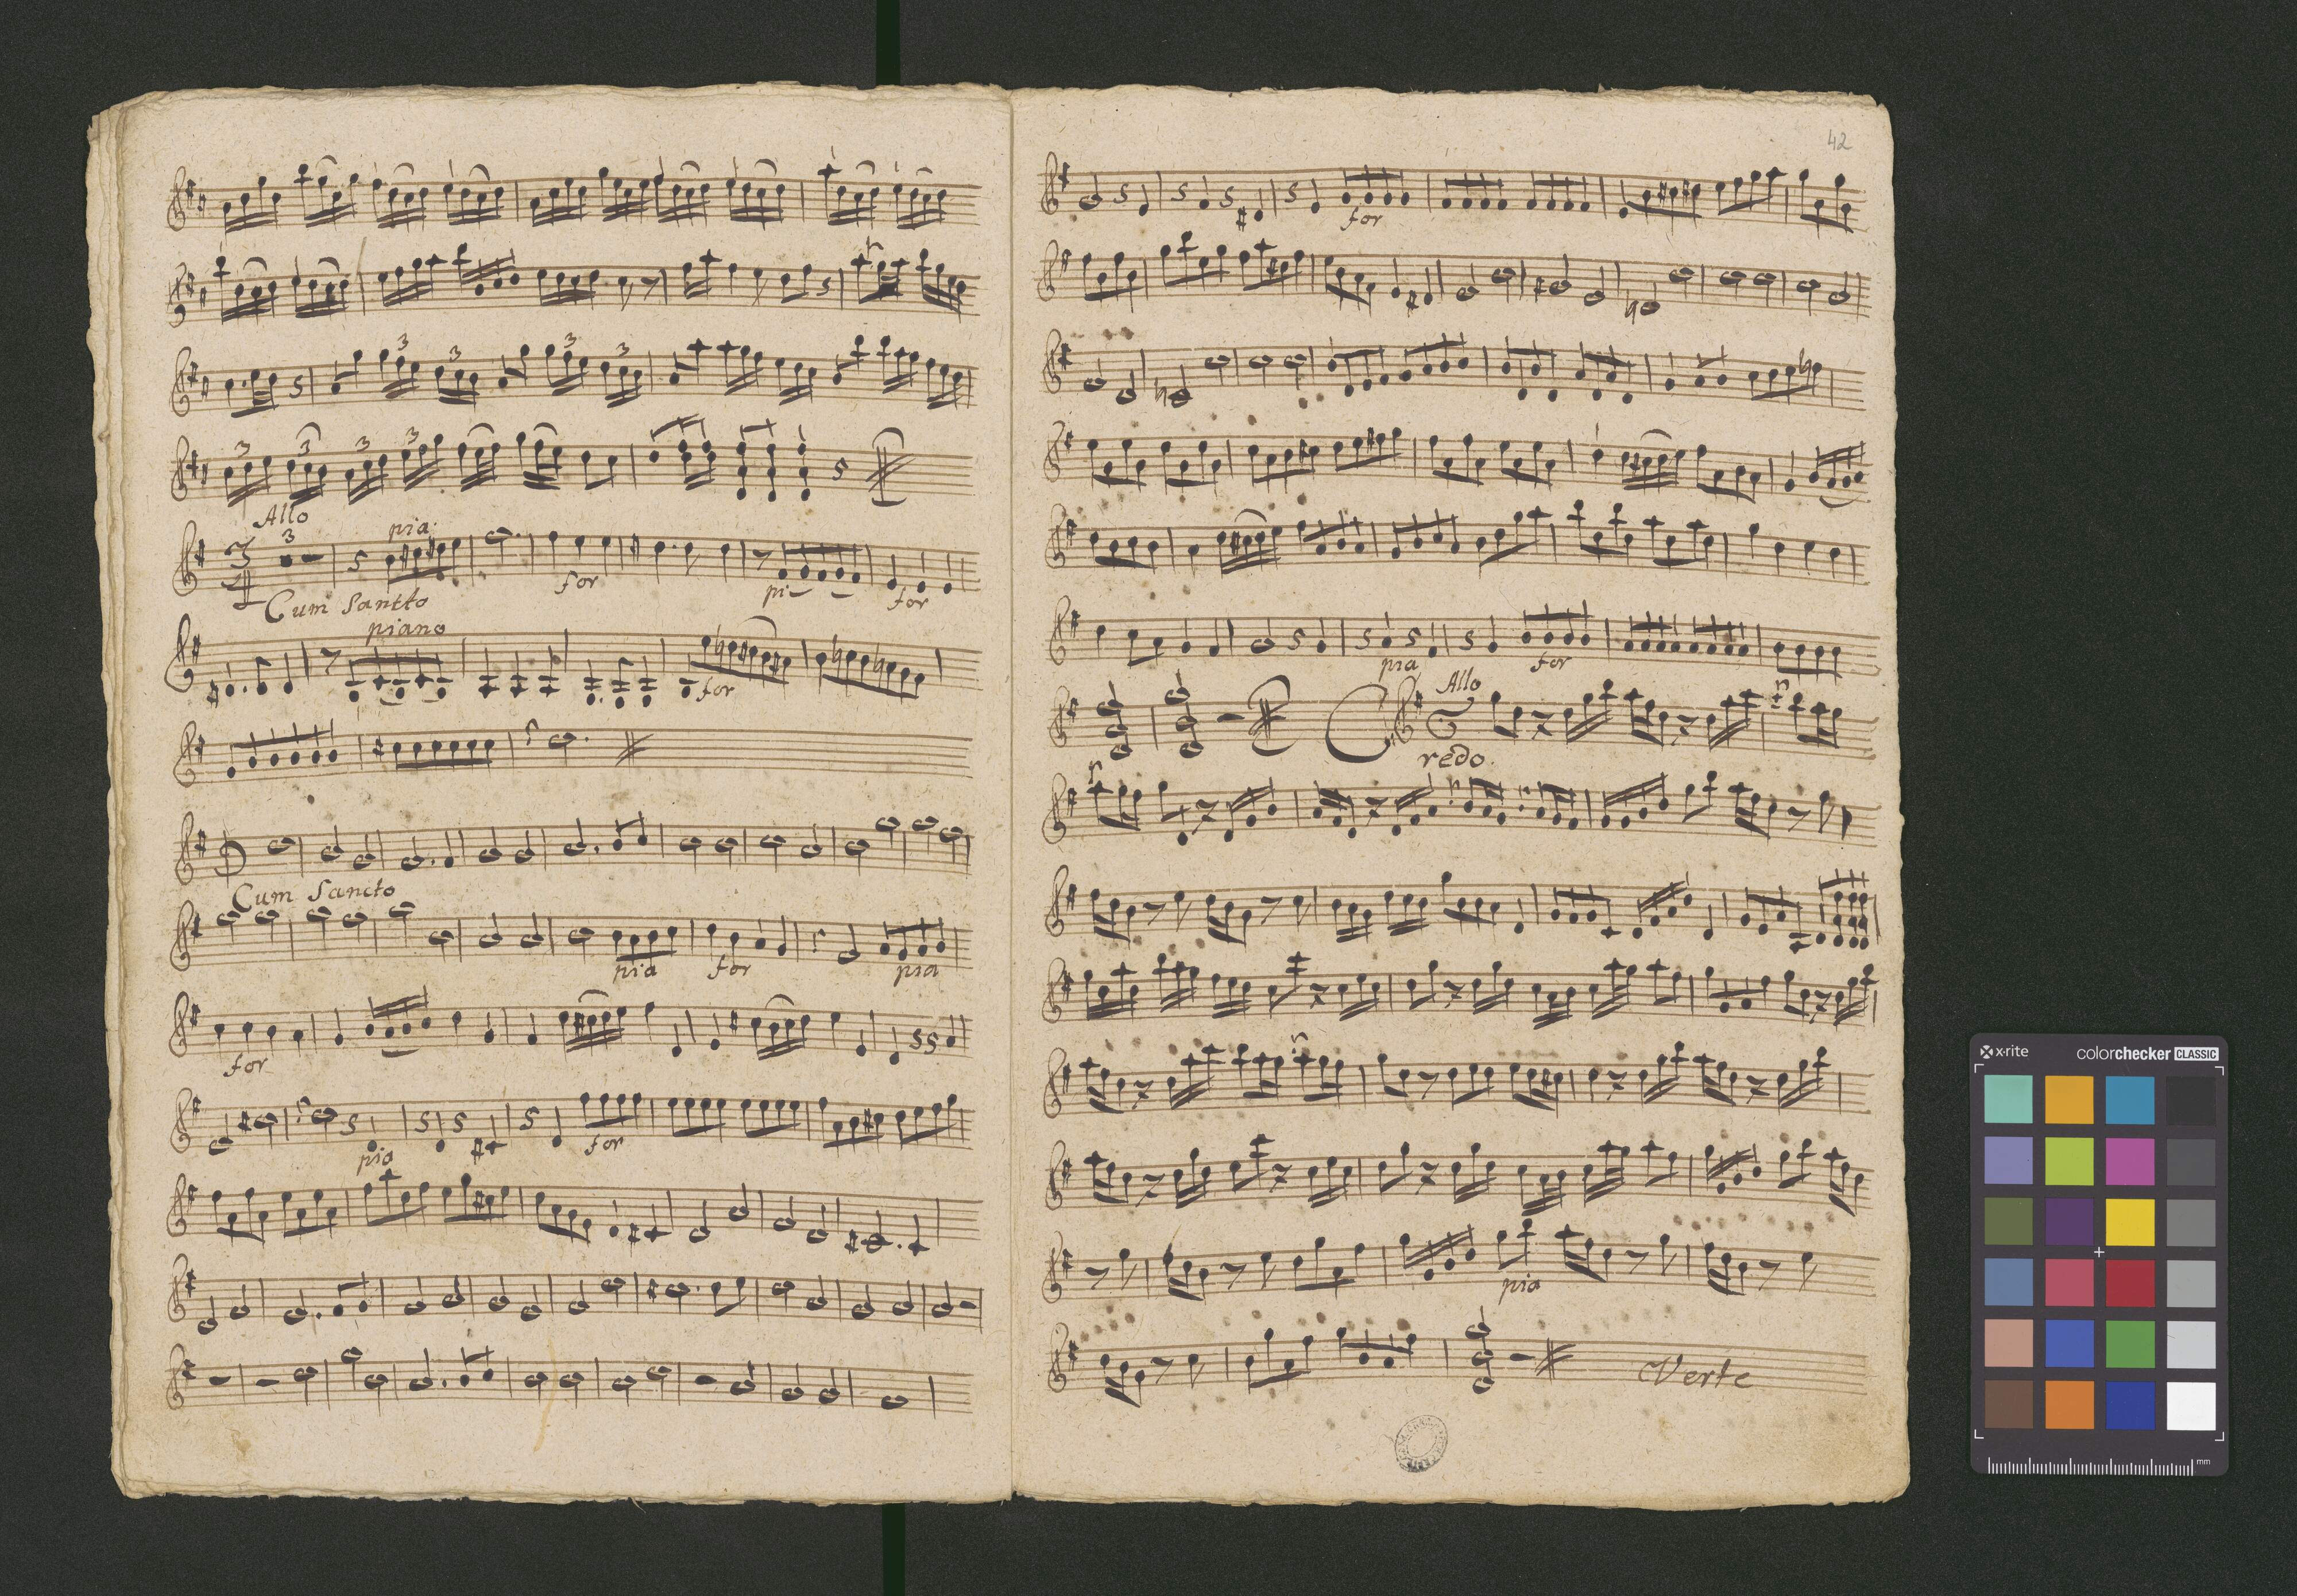 3 3 3 3
3 3 3 3
Allo
3
3 pia:
for pi for
Cum Sancto
piano
for
Cum Sancto
pia for pia
for
pia for
42
for
pia for
Allo
Credo.
pia
Verte
x-rite colorchecker CLASSIC
mm